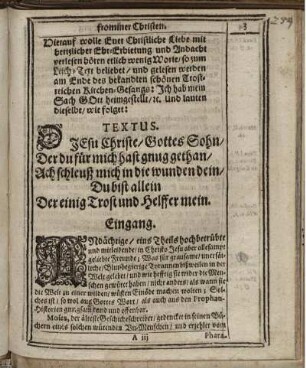 frommer Christen.
3
Hierauf wolle Euer Christliche Liebe mit
hertzlicher Ehr-Erbietung und Andacht
verlesen hören etlich wenig Worte / so zum
Leich-Text beliebet / und gelesen werden
am Ende des bekandten schönen Trost-
reichen Kirchen-Gesangs: Ich hab mein
Sach GOtt heimgestellt / ꝛc. Und lauten
dieselbe / wie folget:
TEXTUS.
O JEsu Christe / Gottes Sohn /
Der du für mich hast gnug gethan /
Ach schleuß mich in die wunden dein /
Du bist allein
Der einig Trost und Helffer mein.
Eingang.
ANdächtige / eins Theils hochbetrübte
und mitleidende in Christo Jesu aller
geliebte Freunde; Was für grausame / unersätt-
liche / Blutdürstige Tyrannen bißweilen in der
Welt gelebet / und wie hefftig sie wider die Men-
schen gewütet haben / nicht anders / als wann sie
die Welt zu einer wilden / wüsten Einöde machen wolten; Sol-
ches ist / so wol aus Gottes Wort / als auch aus den Prophan-
Historien gnugsam kund und offenbar.
Moses, der älteste Geschichtschreiber / gedencket in seinen Bü-
chern eines solchen wütenden Men-Menschen / und erzehlet vom
A iij
Phara-